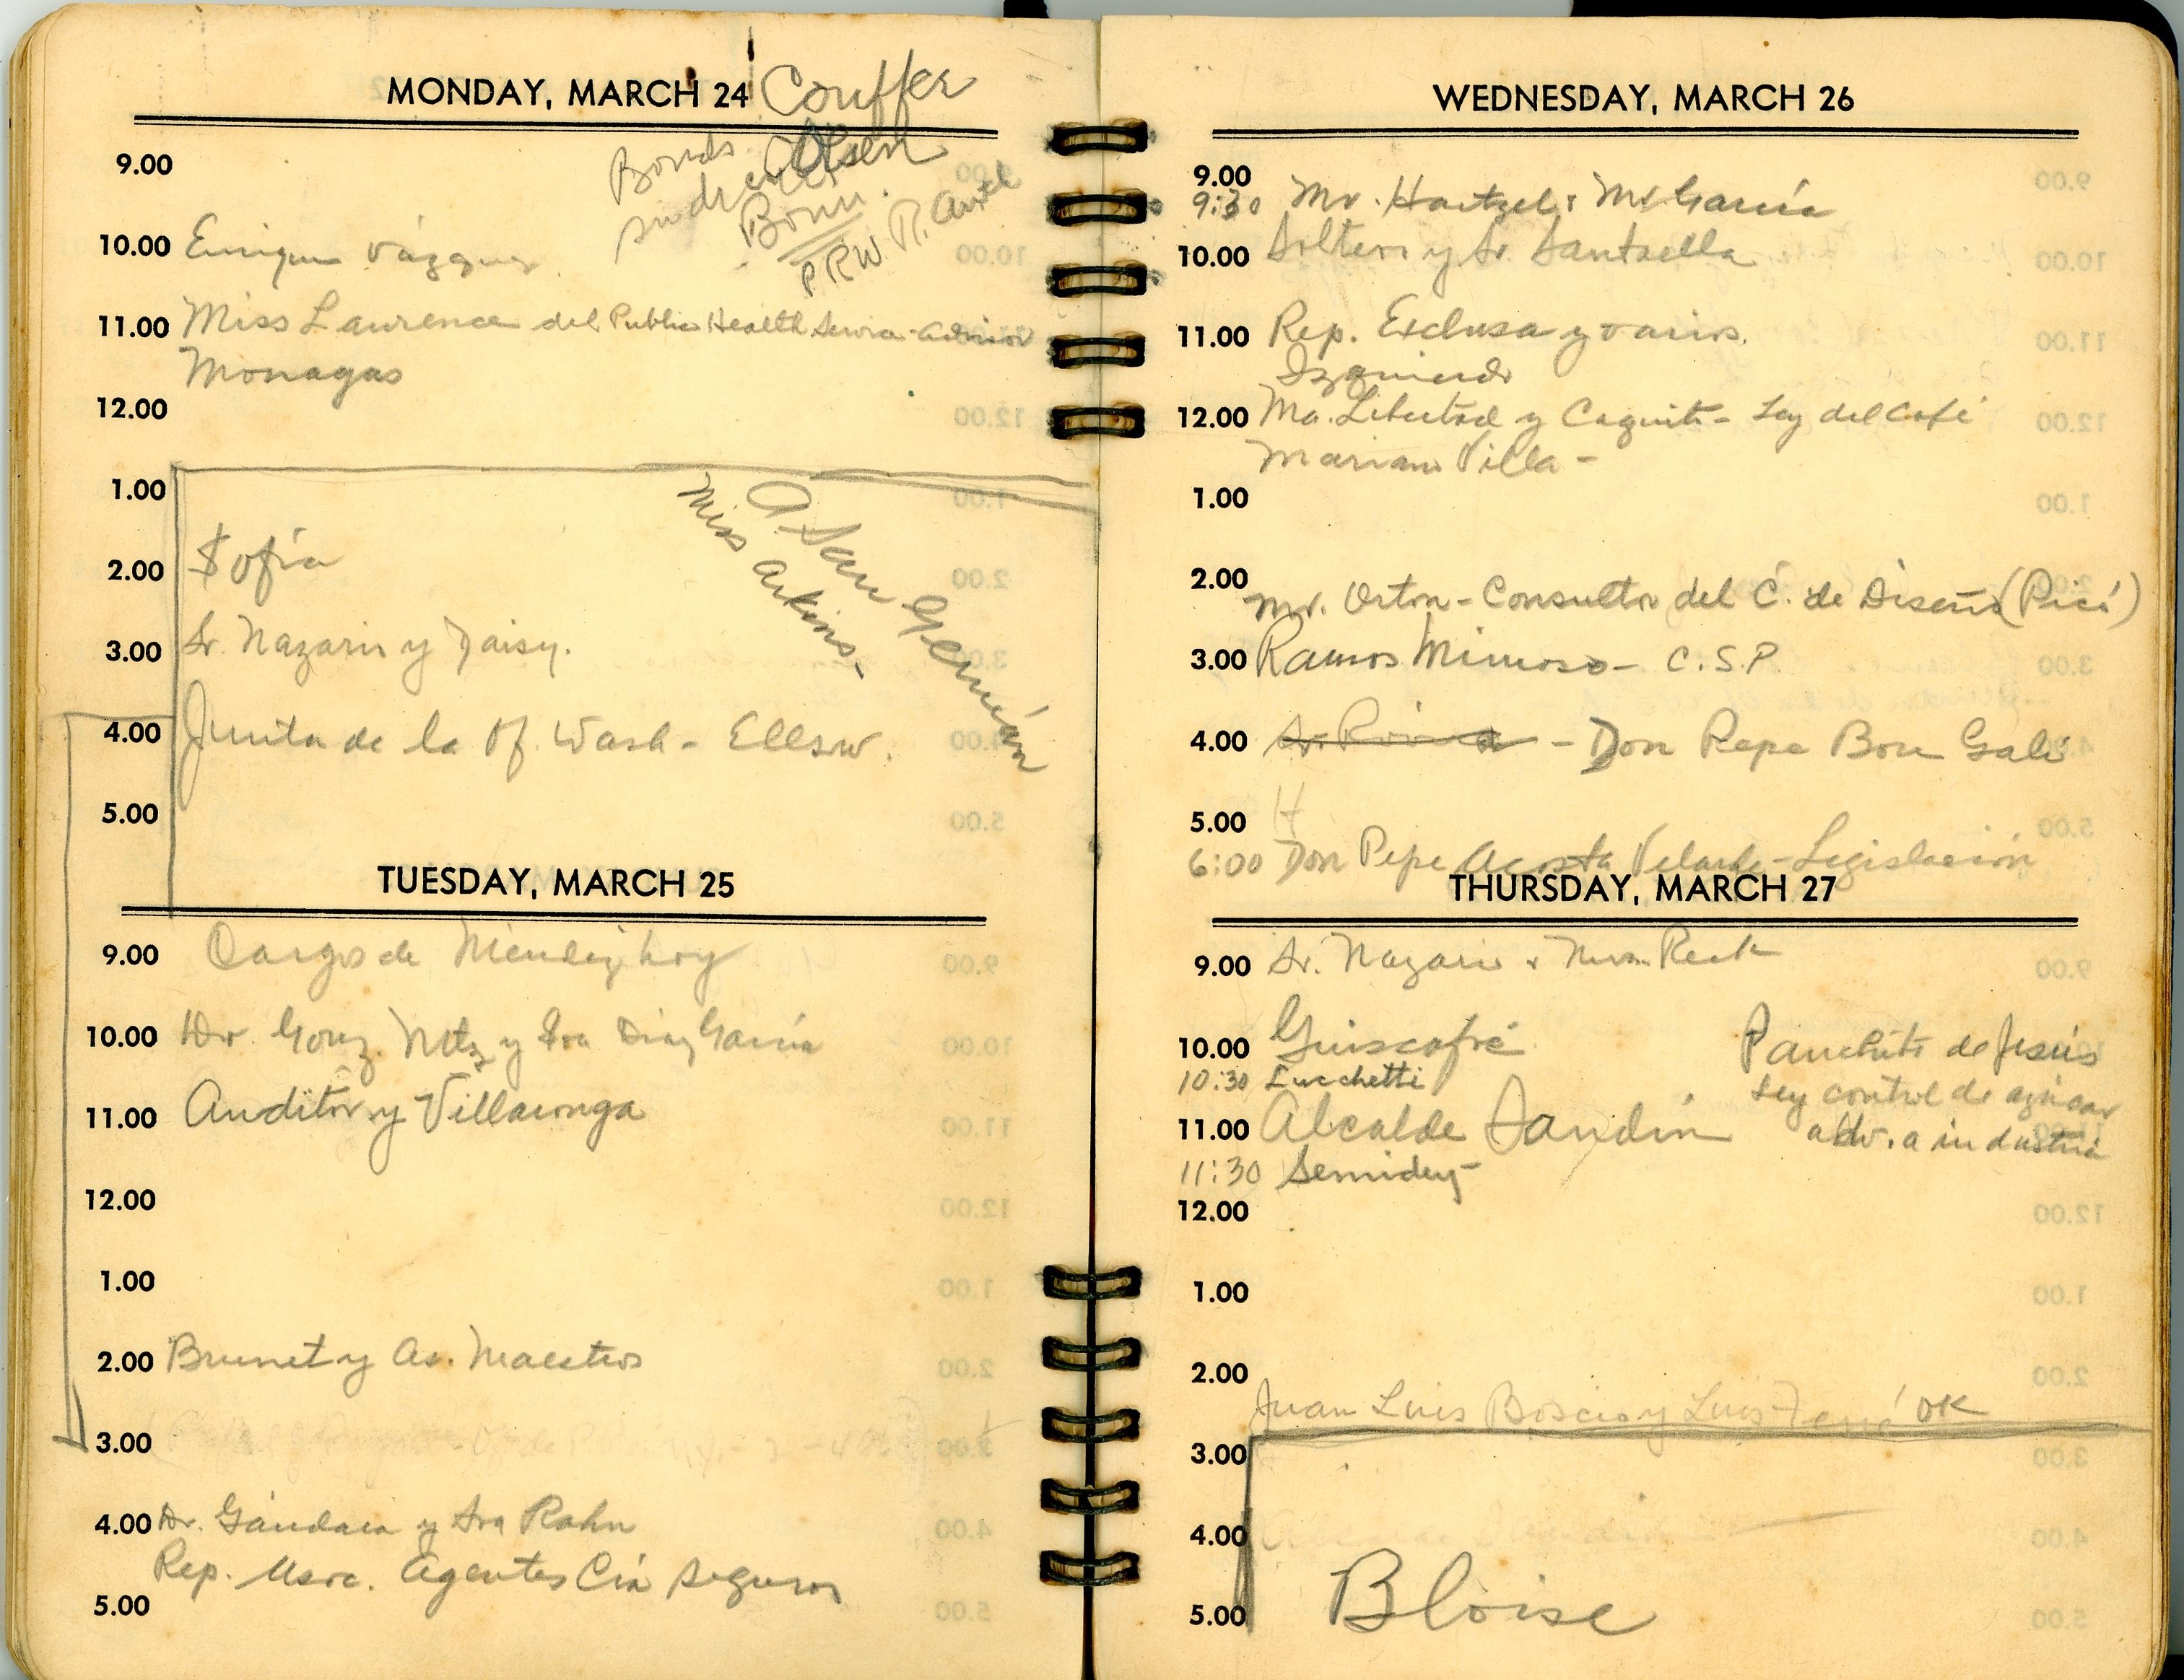 MONDAY, MARCH 24
Couffer
Bonds Olsen
Bonn.
PRW
9.00
10.00 Enrique Vázquez
11.00 Miss Laurence del Public Health Service-advisor
Monagas
12.00
1.00
A San Germán
Miss Arkins.
2.00 Sofía
3.00 Sr. Nazario y Daisy.
4.00 Junta de la Of. Wash - Ellsw.
5.00
TUESDAY, MARCH 25
9.00 Cargos de hoy
10.00 Dr. Gonz. Mtz y Sra Diaz García
11.00 Auditor y Villaronga
12.00
1.00
2.00 Brunet y As. Maestros
3.00
4.00 Dr. Gándara y Sra Rahn
Rep. Asoc. Agentes Cía Seguros
5.00
WEDNESDAY, MARCH 26
9.00
9:30 Mr. Hartzel & Mr García
10.00 Soltero y Sr. Santaella
11.00 Rep. Esclusa y varios.
Izquierdo
12.00 Ma. Libertad y Caquito - Ley del Café
Mariano Villa -
1.00
2.00
Mr. Orton - Consultor del C. de Diseño (Picó)
3.00 Ramos Mimoso - C.S.P.
4.00 Sr. - Don Pepe Bou Galí
5.00 H
6:00 Don Pepe Acosta Velarde - Legislación
THURSDAY, MARCH 27
9.00 Sr. Nazario &
10.00 Guiscafré
Panchito de Jesús
10:30 Lucchetti
Ley control de azúcar
11.00 Alcalde Sandín
adv. a industria
11:30 Semidey -
12.00
1.00
2.00
Juan Luis Boscio y Luis Ferré OK
3.00
4.00
5.00 Bloise